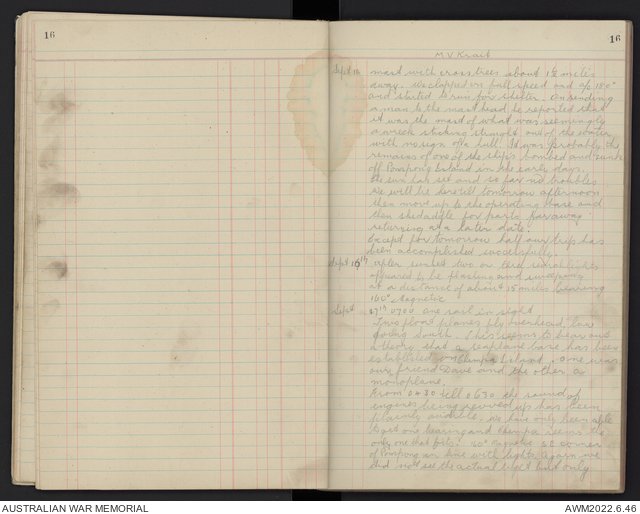 16
16
M V Krait
Sept 16 mast with crosstrees about 1½ miles
away. We clapped on full speed and a/c 180°
and started to run for shelter. On sending
a man to the mast head he reported that
it was the mast of what was seemingly
a wreck sticking straight out of the water
with no sign of a hull. It was probably the
remains of one of the ships bombed and sunk
off Pompong Island in the early days.
The sun has set and so far no troubles
We will be here till tomorrow afternoon
then move up to the operating base and
then skedaddle for parts far away
returning at a later date.
Except for tomorrow half our trip has
been accomplished successfully.
Sept 16th after sunset two or three searchlights
appeared to be flashing and
at a distance of about 15 miles bearing
160° Magnetic
Sept 17th 0700 one sail in sight
Two float planes fly overhead low
going South. This seems to bear out
theory that a seaplane base has been
established on Chempa Island. One was
our friend Dave and the other a
monoplane.
From 0430 till 0630 the sound of
engines being revved up has been
plainly audible. We have only been able
to get one bearing and Chempa seems the
only one that fits. 30° Magnetic SE corner
of Pompong in line with lights again we
did not see the actual light but only
AUSTRALIAN WAR MEMORIAL
AWM2022.6.46